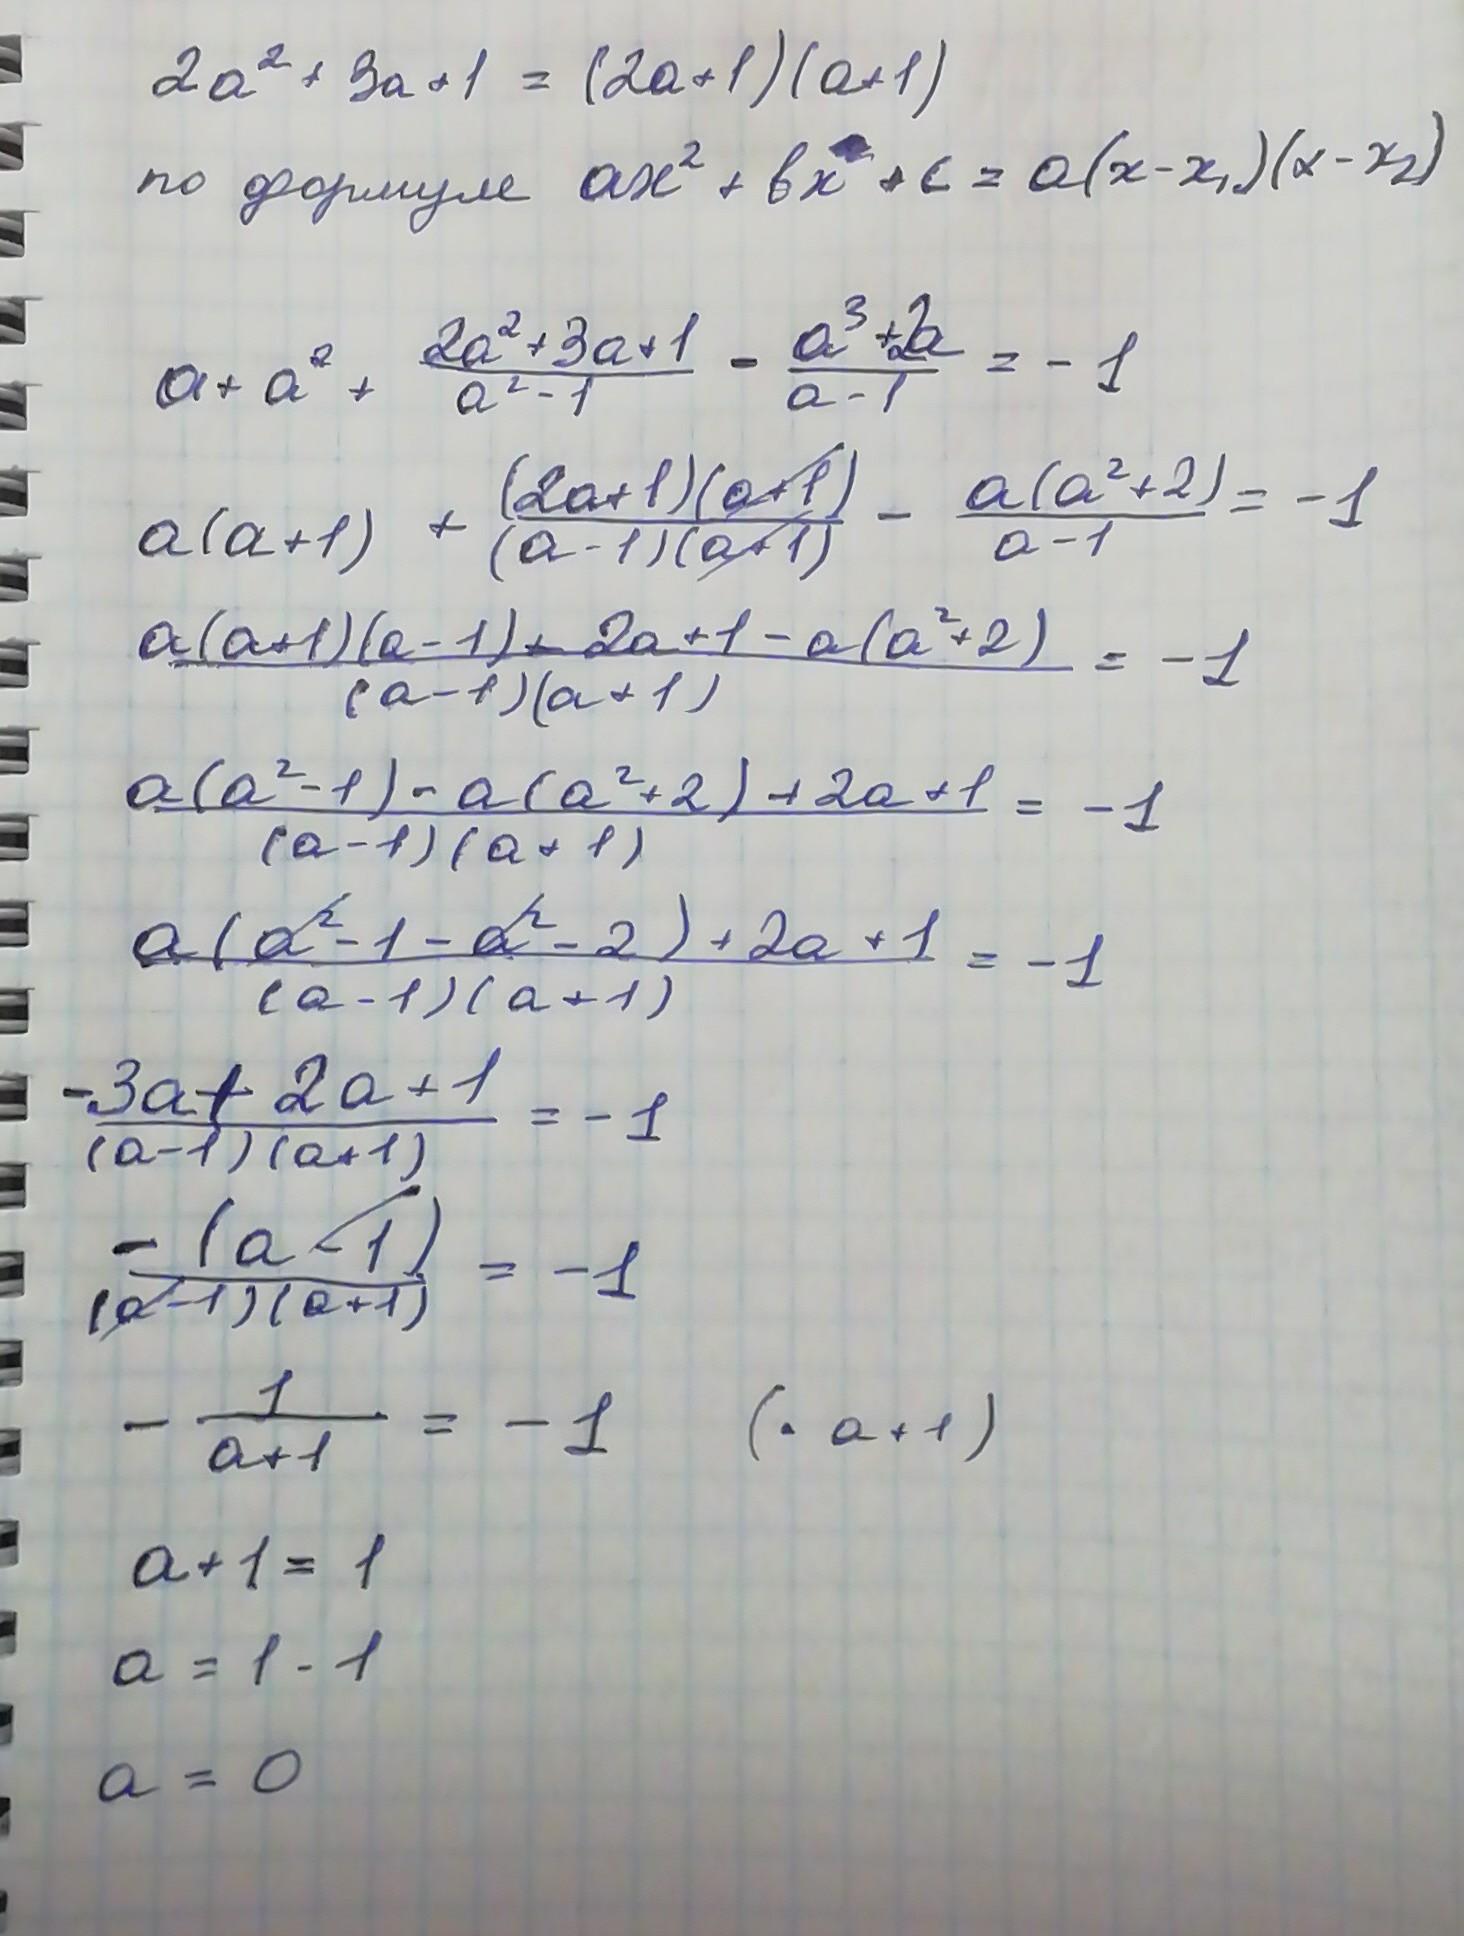 2a² + 3a + 1 = (2a+1)(a+1)
по формуле ax² + bx + c = a(x-x₁)(x-x₂)
a + a² + (2a²+3a+1)/(a²-1) - (a³+2a)/(a-1) = -1
a(a+1) + ((2a+1)(a+1))/((a-1)(a+1)) - (a(a²+2))/(a-1) = -1
(a(a+1)(a-1) + 2a+1 - a(a²+2))/((a-1)(a+1)) = -1
(a(a²-1) - a(a²+2) + 2a+1)/((a-1)(a+1)) = -1
(a(a²-1-a²-2) + 2a+1)/((a-1)(a+1)) = -1
(-3a + 2a+1)/((a-1)(a+1)) = -1
(-(a-1))/((a-1)(a+1)) = -1
- 1/(a+1) = -1 (· a+1)
a+1 = 1
a = 1 - 1
a = 0